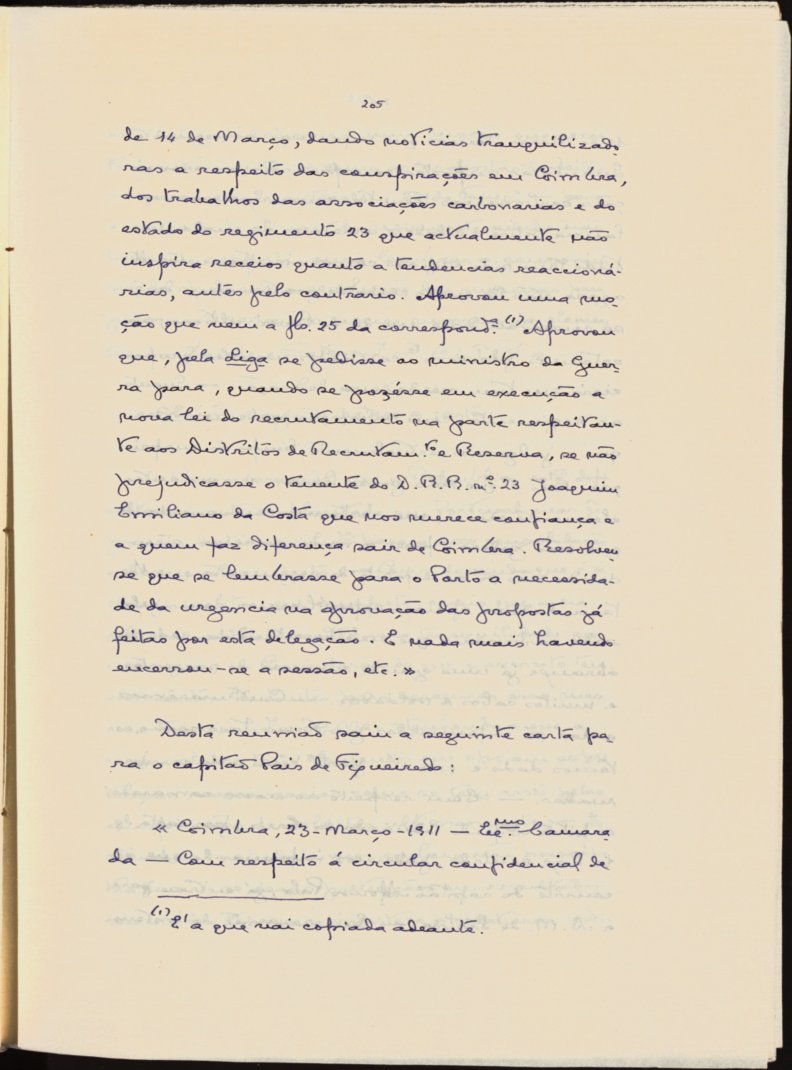 205
de 14 de Março, dando noticias tranquilizado-
ras a respeito das conspirações em Coimbra,
dos trabalhos das associações carbonarias e do
estado do regimento 23 que actualmente não
inspira receios quanto a tendencias reaccioná-
rias, antes pelo contrario. Aprovou uma mo-
ção que vem a fls. 25 da correspond.ª (1) Aprovou
que, pela Liga se pedisse ao ministro da Guer-
ra para, quando se pozésse em execução a
nova lei do recrutamento na parte respeitan-
te aos Distritos de Recrutam.to e Reserva, se não
prejudicasse o tenente do D.R.R. n.º 23 Joaquim
Emiliano da Costa que nos merece confiança e
a quem faz diferença sair de Coimbra. Resolveu-
se que se lembrasse para o Porto a necessida-
de da urgencia na aprovação das propostas já
feitas por esta delegação. E nada mais havendo
encerrou-se a sessão, etc. »
Desta reunião saiu a seguinte carta pa-
ra o capitão Pais de Figueiredo:
« Coimbra, 23-Março-1911 — Ex.mo Camara-
da — Com respeito á circular confidencial de
(1) E' a que vai copiada adeante.